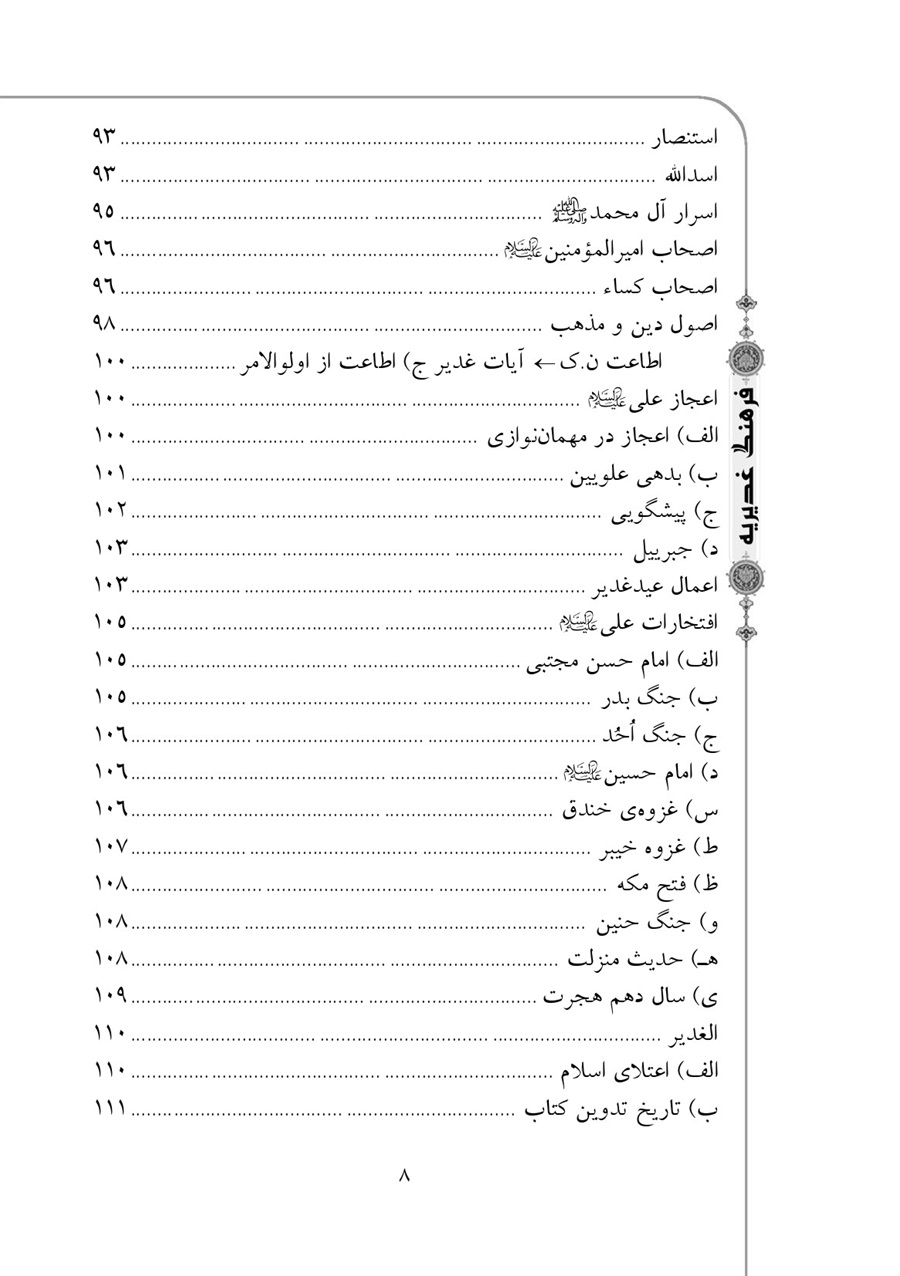 استنصار ........................................................ ۹۳
اسدالله ........................................................ ۹۳
اسرار آل محمد صلی‌الله‌علیه‌وآله‌وسلم ........................................................ ۹۵
اصحاب امیرالمؤمنین علیه‌السلام ........................................................ ۹۶
اصحاب کساء ........................................................ ۹۶
اصول دین و مذهب ........................................................ ۹۸
اطاعت ن.ک ← آیات غدیر ج) اطاعت از اولوالامر .................... ۱۰۰
اعجاز علی علیه‌السلام ........................................................ ۱۰۰
الف) اعجاز در مهمان‌نوازی ........................................................ ۱۰۰
ب) بدهی علویین ........................................................ ۱۰۱
ج) پیشگویی ........................................................ ۱۰۲
د) جبرییل ........................................................ ۱۰۳
اعمال عیدغدیر ........................................................ ۱۰۳
افتخارات علی علیه‌السلام ........................................................ ۱۰۵
الف) امام حسن مجتبی ........................................................ ۱۰۵
ب) جنگ بدر ........................................................ ۱۰۵
ج) جنگ اُحُد ........................................................ ۱۰۶
د) امام حسین علیه‌السلام ........................................................ ۱۰۶
س) غزوه‌ی خندق ........................................................ ۱۰۶
ط) غزوه خیبر ........................................................ ۱۰۷
ظ) فتح مکه ........................................................ ۱۰۸
و) جنگ حنین ........................................................ ۱۰۸
هـ) حدیث منزلت ........................................................ ۱۰۸
ی) سال دهم هجرت ........................................................ ۱۰۹
الغدیر ........................................................ ۱۱۰
الف) اعتلای اسلام ........................................................ ۱۱۰
ب) تاریخ تدوین کتاب ........................................................ ۱۱۱
فرهنگ غدیریه
۸